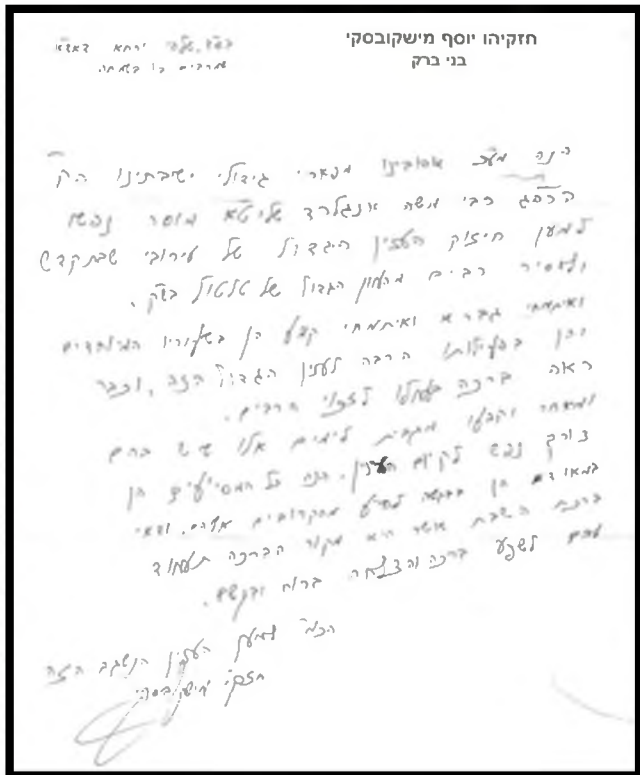 חזקיהו יוסף מישקובסקי
בני ברק
ירחא דאדר
שמרבים בו בשמחה
הנה אהובינו מפארי גידולי ישיבתינו הק'
הרה"ג רבי משה אנגלרד שליט"א מוסר נפשו
למען חיזוק הענין הגדול של עירובי שבת קדש
ולהסיר רבים מהעון הגדול של טלטול בש"ק.
ואיתמחי גברא ואיתמחי קמע הן בשיעוריו המיוחדים
והן בפעילותו הרבה לענין הגדול הזה, וכבר
ראה ברכה בעמלו לזכוי הרבים.
ומאחר וקבעו מגבית לימים אלו שיש בהם
צורך נפש לקיום הענין. הנה כל המסייעים הן
במאודם הן בבקשה לסייע מקרובים אליהם. ודאי
ברכת השבת אשר היא מקור הברכה תעמוד
להם לשפע ברכה והצלחה ברוח ובגשם.
הכו"ח למען הענין הנשגב הזה
חזקי' מישקובסקי